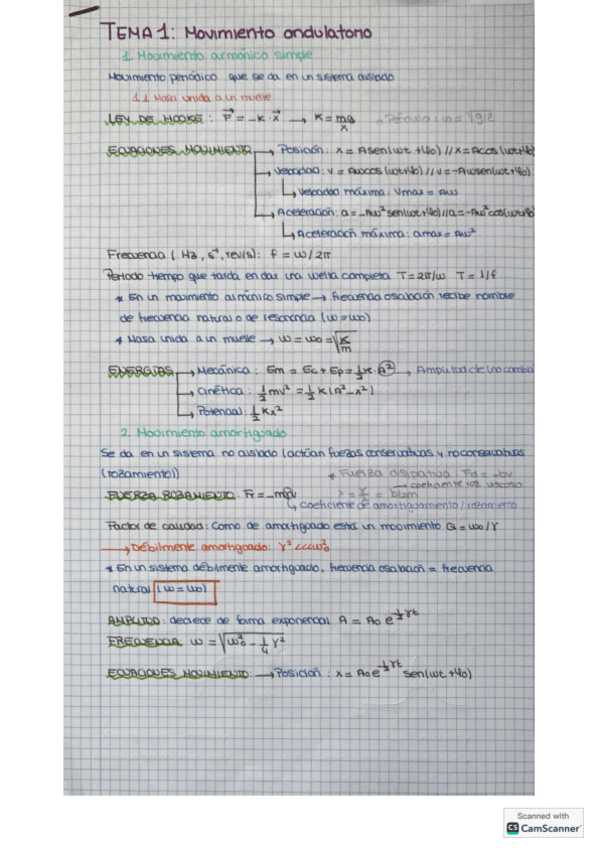 TEMA 1: Movimiento ondulatorio
1. Movimiento armónico simple
Movimiento periódico que se da en un sistema aislado
1.1 Masa unida a un muelle
LEY DE HOOKE: F = -K·x → K = mg/x * Péndulo: ω = √g/l
ECUACIONES MOVIMIENTO → Posición: x = Asen(ωt+φo) // x = Acos(ωt+φo)
→ Velocidad: v = Aωcos(ωt+φo) // v = -Aωsen(ωt+φo)
↳ Velocidad máxima: Vmax = Aω
→ Aceleración: a = -Aω²sen(ωt+φo) // a = -Aω²cos(ωt+φo)
↳ Aceleración máxima: amax = Aω²
Frecuencia (Hz, s⁻¹, rev/s): f = ω/2π
Período tiempo que tarda en dar una vuelta completa T = 2π/ω T = 1/f
* En un movimiento armónico simple → frecuencia oscilación recibe nombre
de frecuencia natural o de resonancia (ω = ωo)
* Masa unida a un muelle → ω = ωo = √K/m
ENERGÍAS → Mecánica: Em = Ec + Ep = ½K·A² → Amplitud cte (no cambia)
→ Cinética: ½mv² = ½K(A²-x²)
→ Potencial: ½Kx²
2. Movimiento amortiguado
Se da en un sistema no aislado (actúan fuerzas conservativas y no conservativas
(rozamiento)) * Fuerza disipativa: Fd = -bv
→ coeficiente roz. viscoso
FUERZA ROZAMIENTO: Fr = -mγv = b/m
↳ coeficiente de amortiguamiento / rozamiento
Factor de calidad: Como de amortiguado está un movimiento Q = ωo/γ
→ Débilmente amortiguado: γ² <<< ωo²
* En un sistema débilmente amortiguado, frecuencia oscilación = frecuencia
natural (ω = ωo)
AMPLITUD: decrece de forma exponencial A = Ao e^-½γt
FRECUENCIA ω = √ωo² - ¼γ²
ECUACIONES MOVIMIENTO → Posición: x = Aoe^-½γt sen(ωt+φo)
Scanned with
CS CamScanner